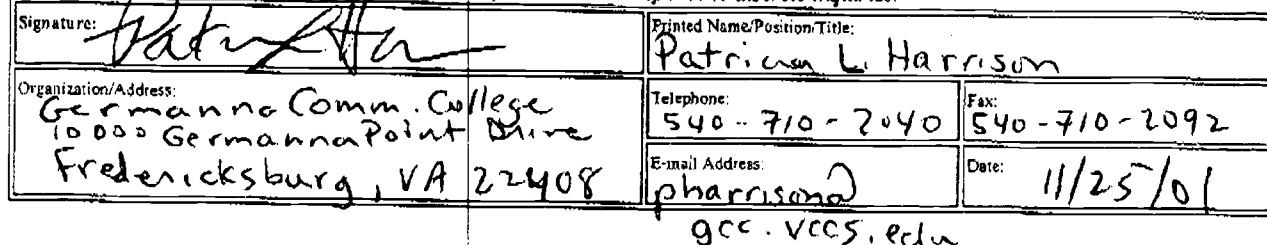 Signature:
Printed Name/Position/Title:
Patricia L. Harrison
Organization/Address:
Germanna Comm. College
10000 Germanna Point Drive
Fredericksburg, VA 22408
Telephone:
540-710-2040
Fax:
540-710-2092
E-mail Address:
pharrison@
gcc.vccs.edu
Date:
11/25/01